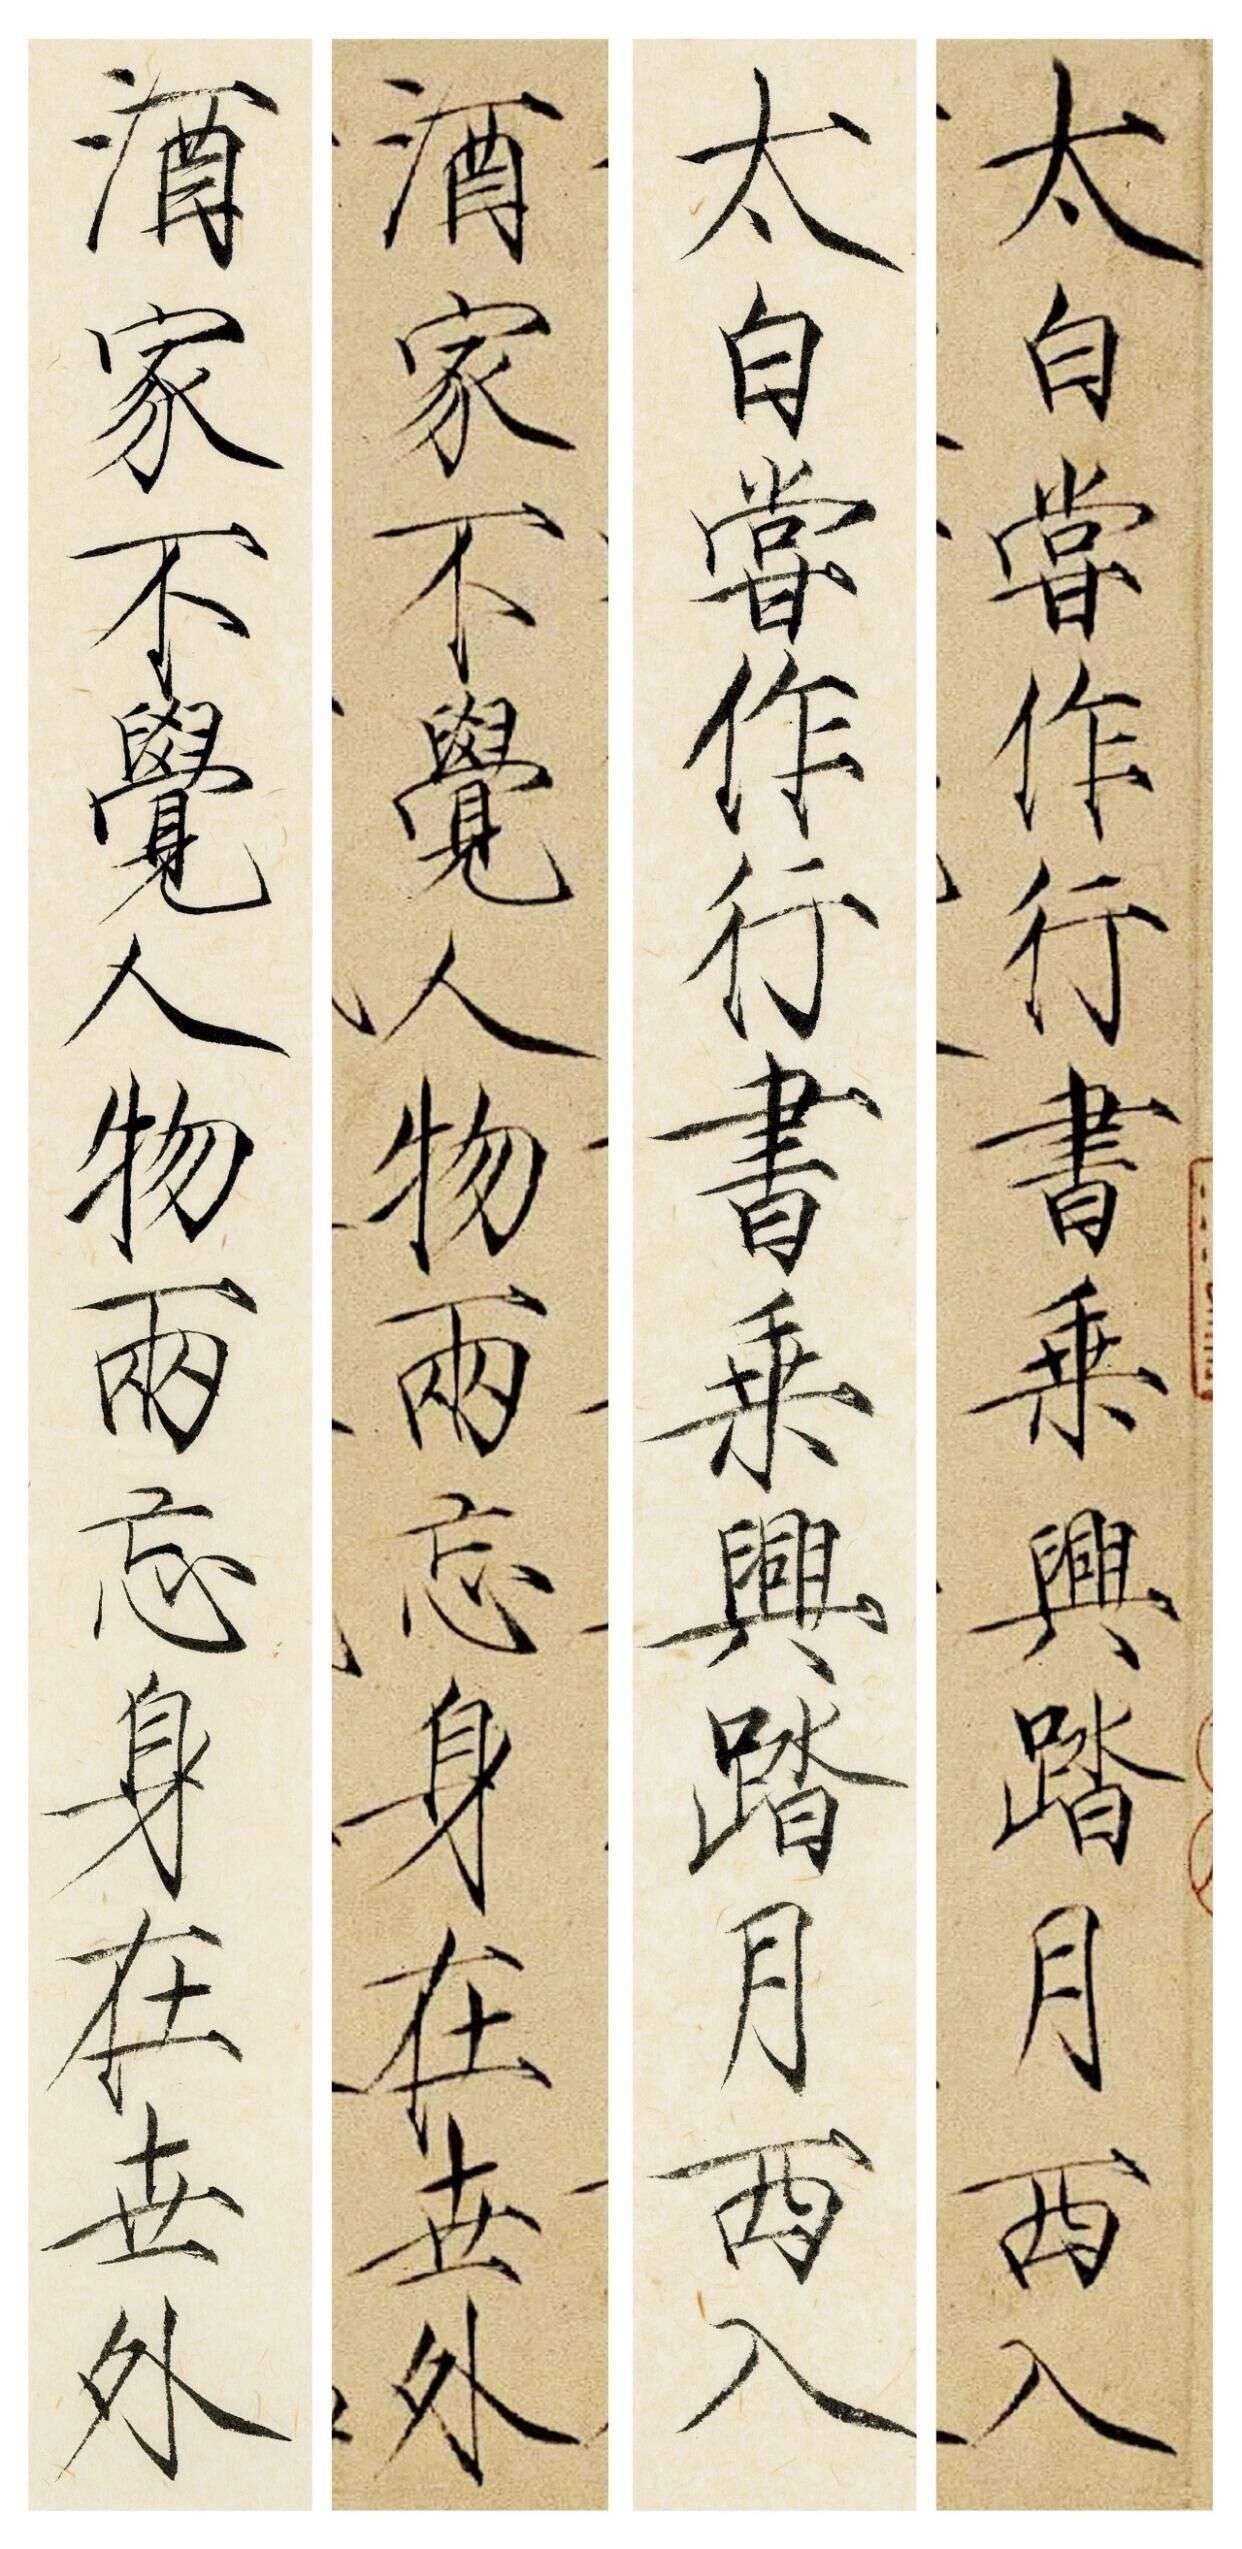 太白嘗作行書乘興踏月西入
太白嘗作行書乘興踏月西入
酒家不覺人物兩忘身在世外
酒家不覺人物兩忘身在世外